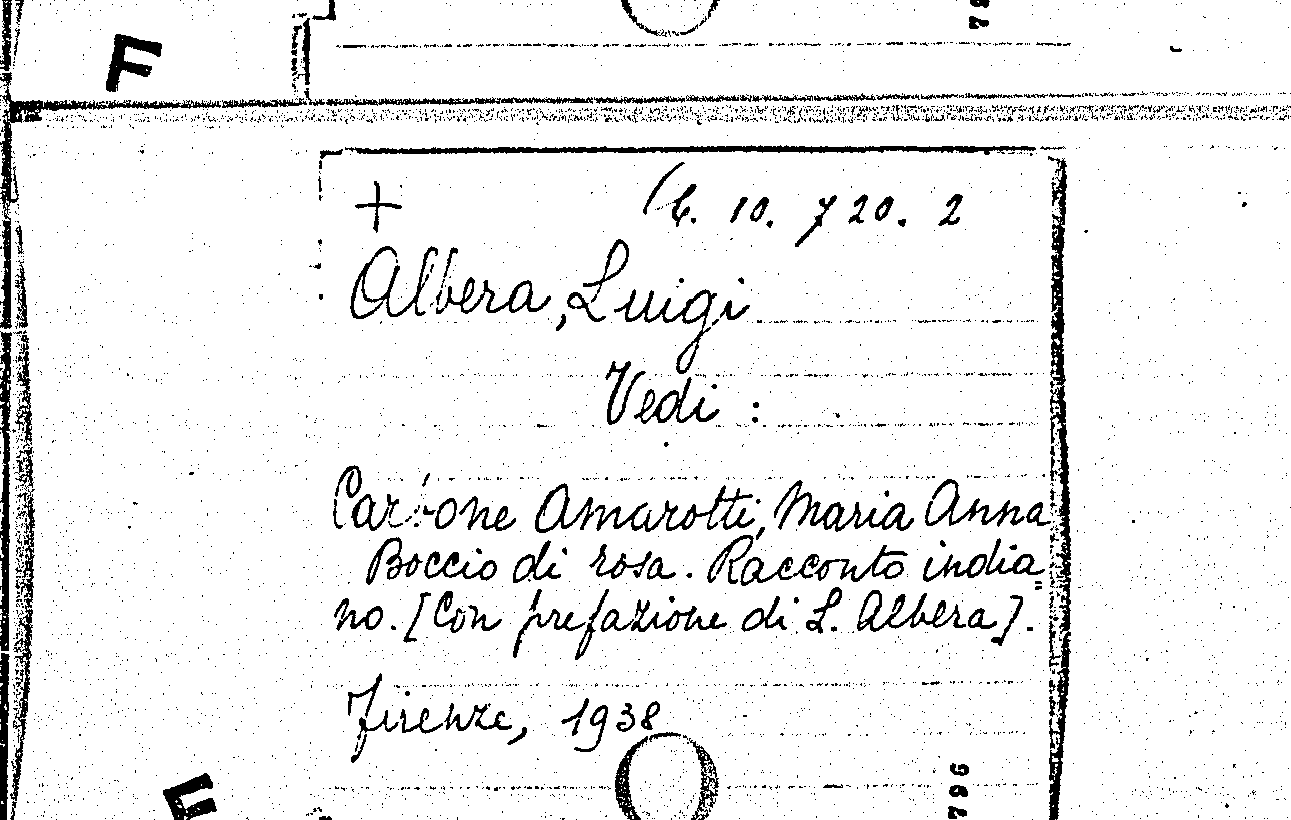 F
+ C. 10. 720. 2
Albera, Luigi
Vedi :
Carbone Amarotti, Maria Anna
Boccio di rosa. Racconto india=
no. [Con prefazione di L. Albera].
Firenze, 1938
796